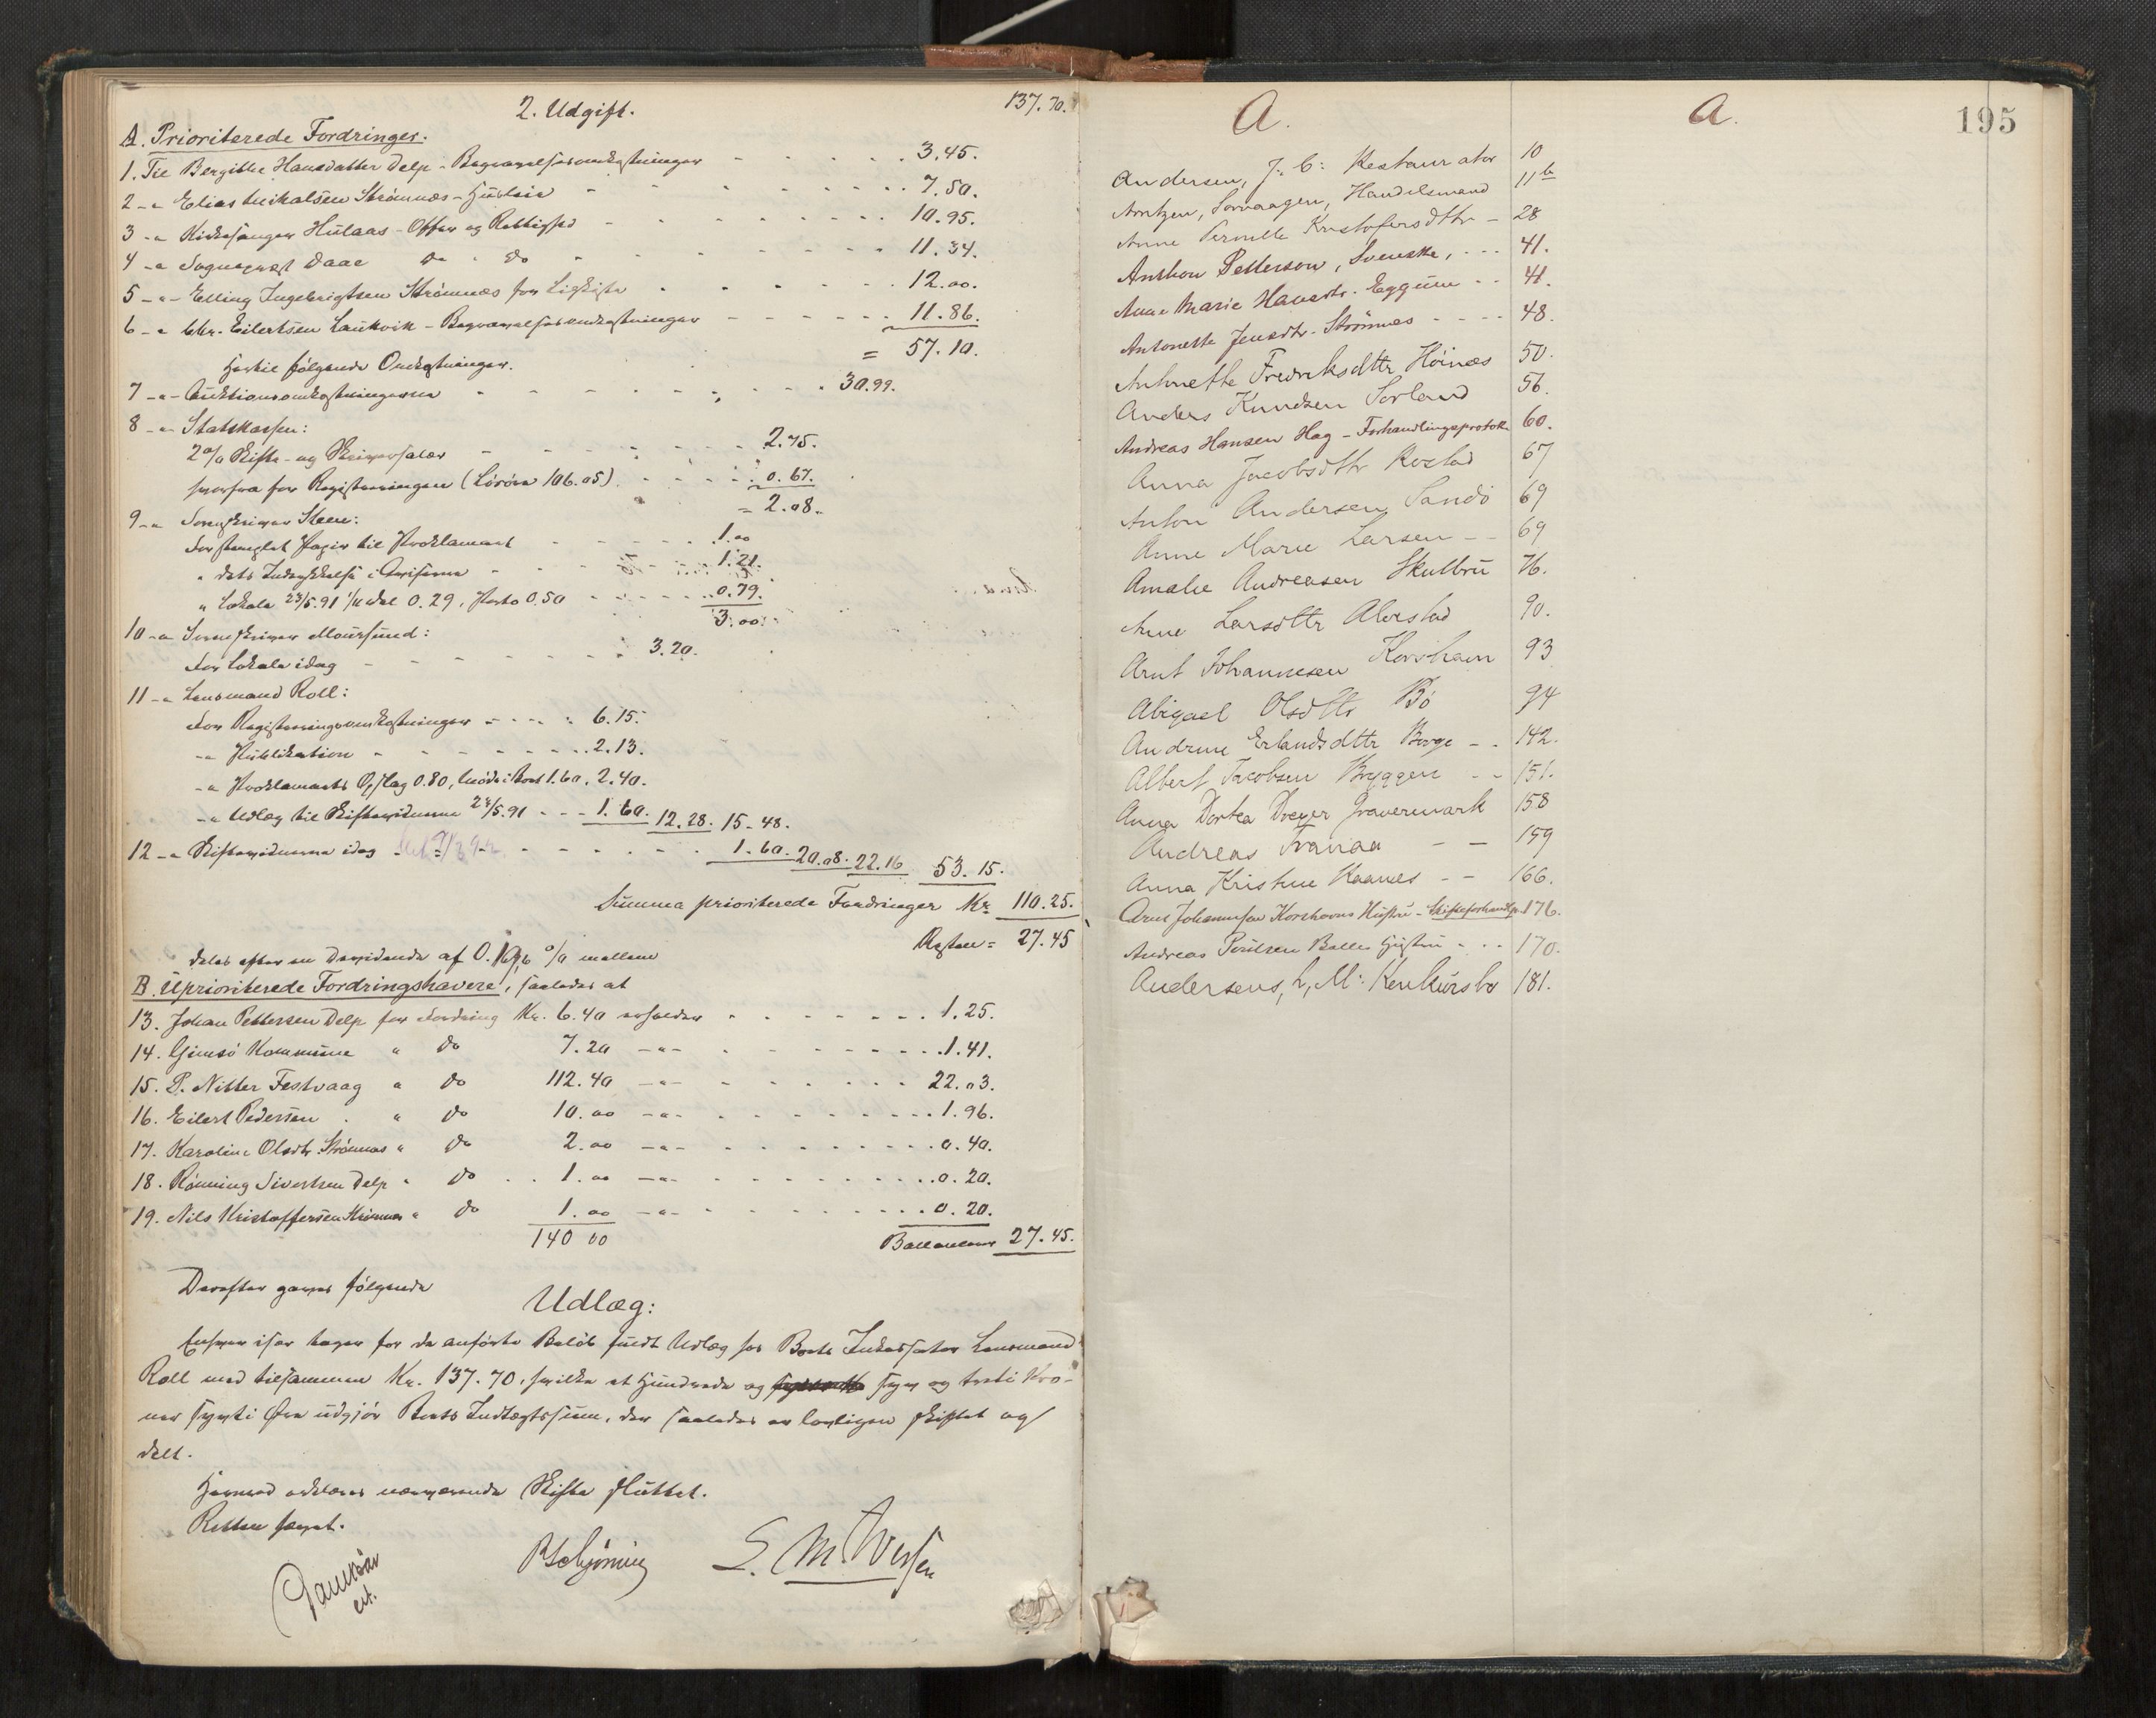 2. Udgift. 137.70.
A. Prioriterede Fordringer.
1. Til Bergitte Hansdatter Delp - Begravelsesomkostninger - - - 3.45.
2 -"- Elias Mikalsen Strømnæs - Husleie - - - 7.50.
3 -"- Kirkesanger Hulaas - Offer og Rettighed - - - 10.95.
4 -"- Sogneprest Daae do do - - - 11.34.
5 -"- Elling Ingebrigtsen Strømnæs for Ligkiste - - - 12.00.
6 -"- Chr. Eilertsen Laukvik - Begravelsesomkostninger - - - 11.86.
= 57.10.
Hertil følgende Omkostninger.
7 -"- Auktionsomkostningerne - - - 30.99.
8 -"- Statskassen:
2% Skifte- og Skriversalær - - - 2.75.
herfra for Registreringen (Løsøre 106.05) - - - 0.67.
= 2.08.
9 -"- Sorenskriver Steen:
For stemplet Papir til Proklamaet - - - 1.00
" dets Indrykkelse i Aviserne - - - 1.21.
" Lokale 23/5.91 0.29, Porto 0.50 - - - 0.79.
3.00.
10 -"- Sorenskriver Moursund:
For Lokale idag - - - 3.20.
11 -"- Lensmand Roll:
For Registreringsomkostninger - - - 6.15.
-"- Publikation - - - 2.13.
-"- Proklamaets Opslag 0.80, Møde i Boet 1.60, 2.40.
-"- Udlæg til Skiftevidnerne 23/5.91 - - - 1.60. 12.28. 15.48.
12 -"- Skiftevidnerne idag - - - 1.60. 20.08. 22.16 53.15.
Summa prioriterede Fordringer Kr. 110.25.
Resten = 27.45
deles efter en Dividende af 0.196 % mellem
B. Uprioriterede Fordringshavere, saaledes at
13. Johan Pettersen Delp for Fordring Kr. 6.40 erholder - - - 1.25.
14. Gimsø Kommune " do 7.20 -"- - - - 1.41.
15. P. Nitter Festvaag " do 112.40 -"- - - - 22.03.
16. Eilert Pedersen " do 10.00 -"- - - - 1.96.
17. Karoline Olsdtr. Strømnæs " do 2.00 -"- - - - 0.40.
18. Rønning Sivertsen Delp " do 1.00 -"- - - - 0.20.
19. Nils Kristoffersen Strømnæs " do 1.00 -"- - - - 0.20.
140 00 Ballancerer 27.45.
Derefter gaves følgende
Udlæg:
Enhver især tager for de anførte Beløb fuldt Udlæg hos Boets Inkassator Lensmand
Roll med tilsammen Kr. 137.70, hvilke et Hundrede og syv og treti Kro-
ner syvti Øre udgjør Boets Indtægtssum, der saaledes er lovligen skiftet og
delt.
Hermed erklæres nærværende Skifte sluttet.
Retten hævet.
A. A. 195
Andersen, J. C: Restauratør 10
Arntzen, Sørvaagen, Handelsmand 11b
Anne Pernille Kristofersdtr - 28
Anthon Petterson, Svenske, - - - 41.
Anne Marie Hansdtr. Eggum - - 41.
Antonette Jensdtr. Strømnes - - - - 48.
Anthnette Fredreksdttr Höinæs 50.
Anders Knudsen Sorland 56.
Andreas Hansen Hag - Forhandlingsprotok. 60.
Anna Jacobsdttr Rostad 67
Anton Andersen Sandö 69
Anne Marie Larsen - - 69
Amalie Andreasen Skulbru 76.
Anne Larsdttr Alvestad 90.
Arnt Johannesen Korshavn 93
Abigael Olsdttr Bö 94
Andrine Erlandsdttr Borge - - 142.
Albert Jacobsen Bryggen - - 151.
Anna Dortea Dreyer Gravermark 158
Andreas Tranaa - - 159
Anna Kristine Kaanes - - 166.
Arnt Johannesen Korshavns Hustru - Skifteforhandlp. 176.
Andreas Poulsen Balles Hustru - - - 170.
Andersens, L, M: Konkursbo 181.